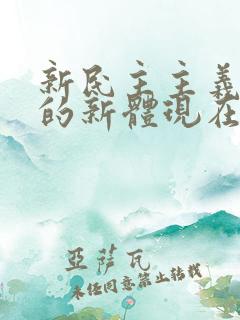 新民主主義
的新體現在
亞薩瓦
未经同意禁止转载